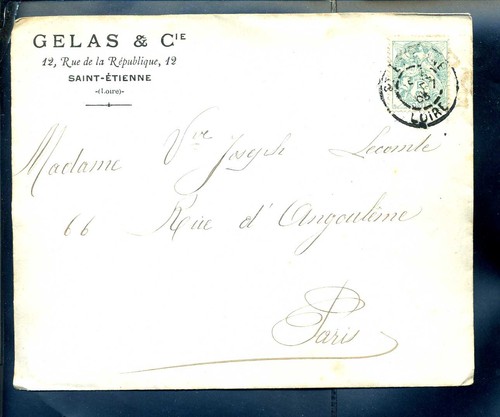 GELAS & CIE
12, Rue de la République, 12
SAINT-ÉTIENNE
(Loire)
LOIRE
Madame Vve Joseph Lecomte
66 Rue d'Angoulême
Paris